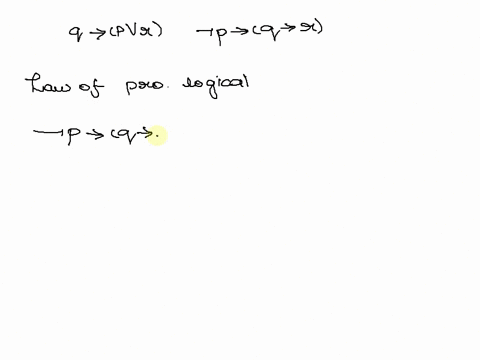 q → (P ∨ r) ¬p → (q → r)
Law of pro. logical
¬p → (q →.